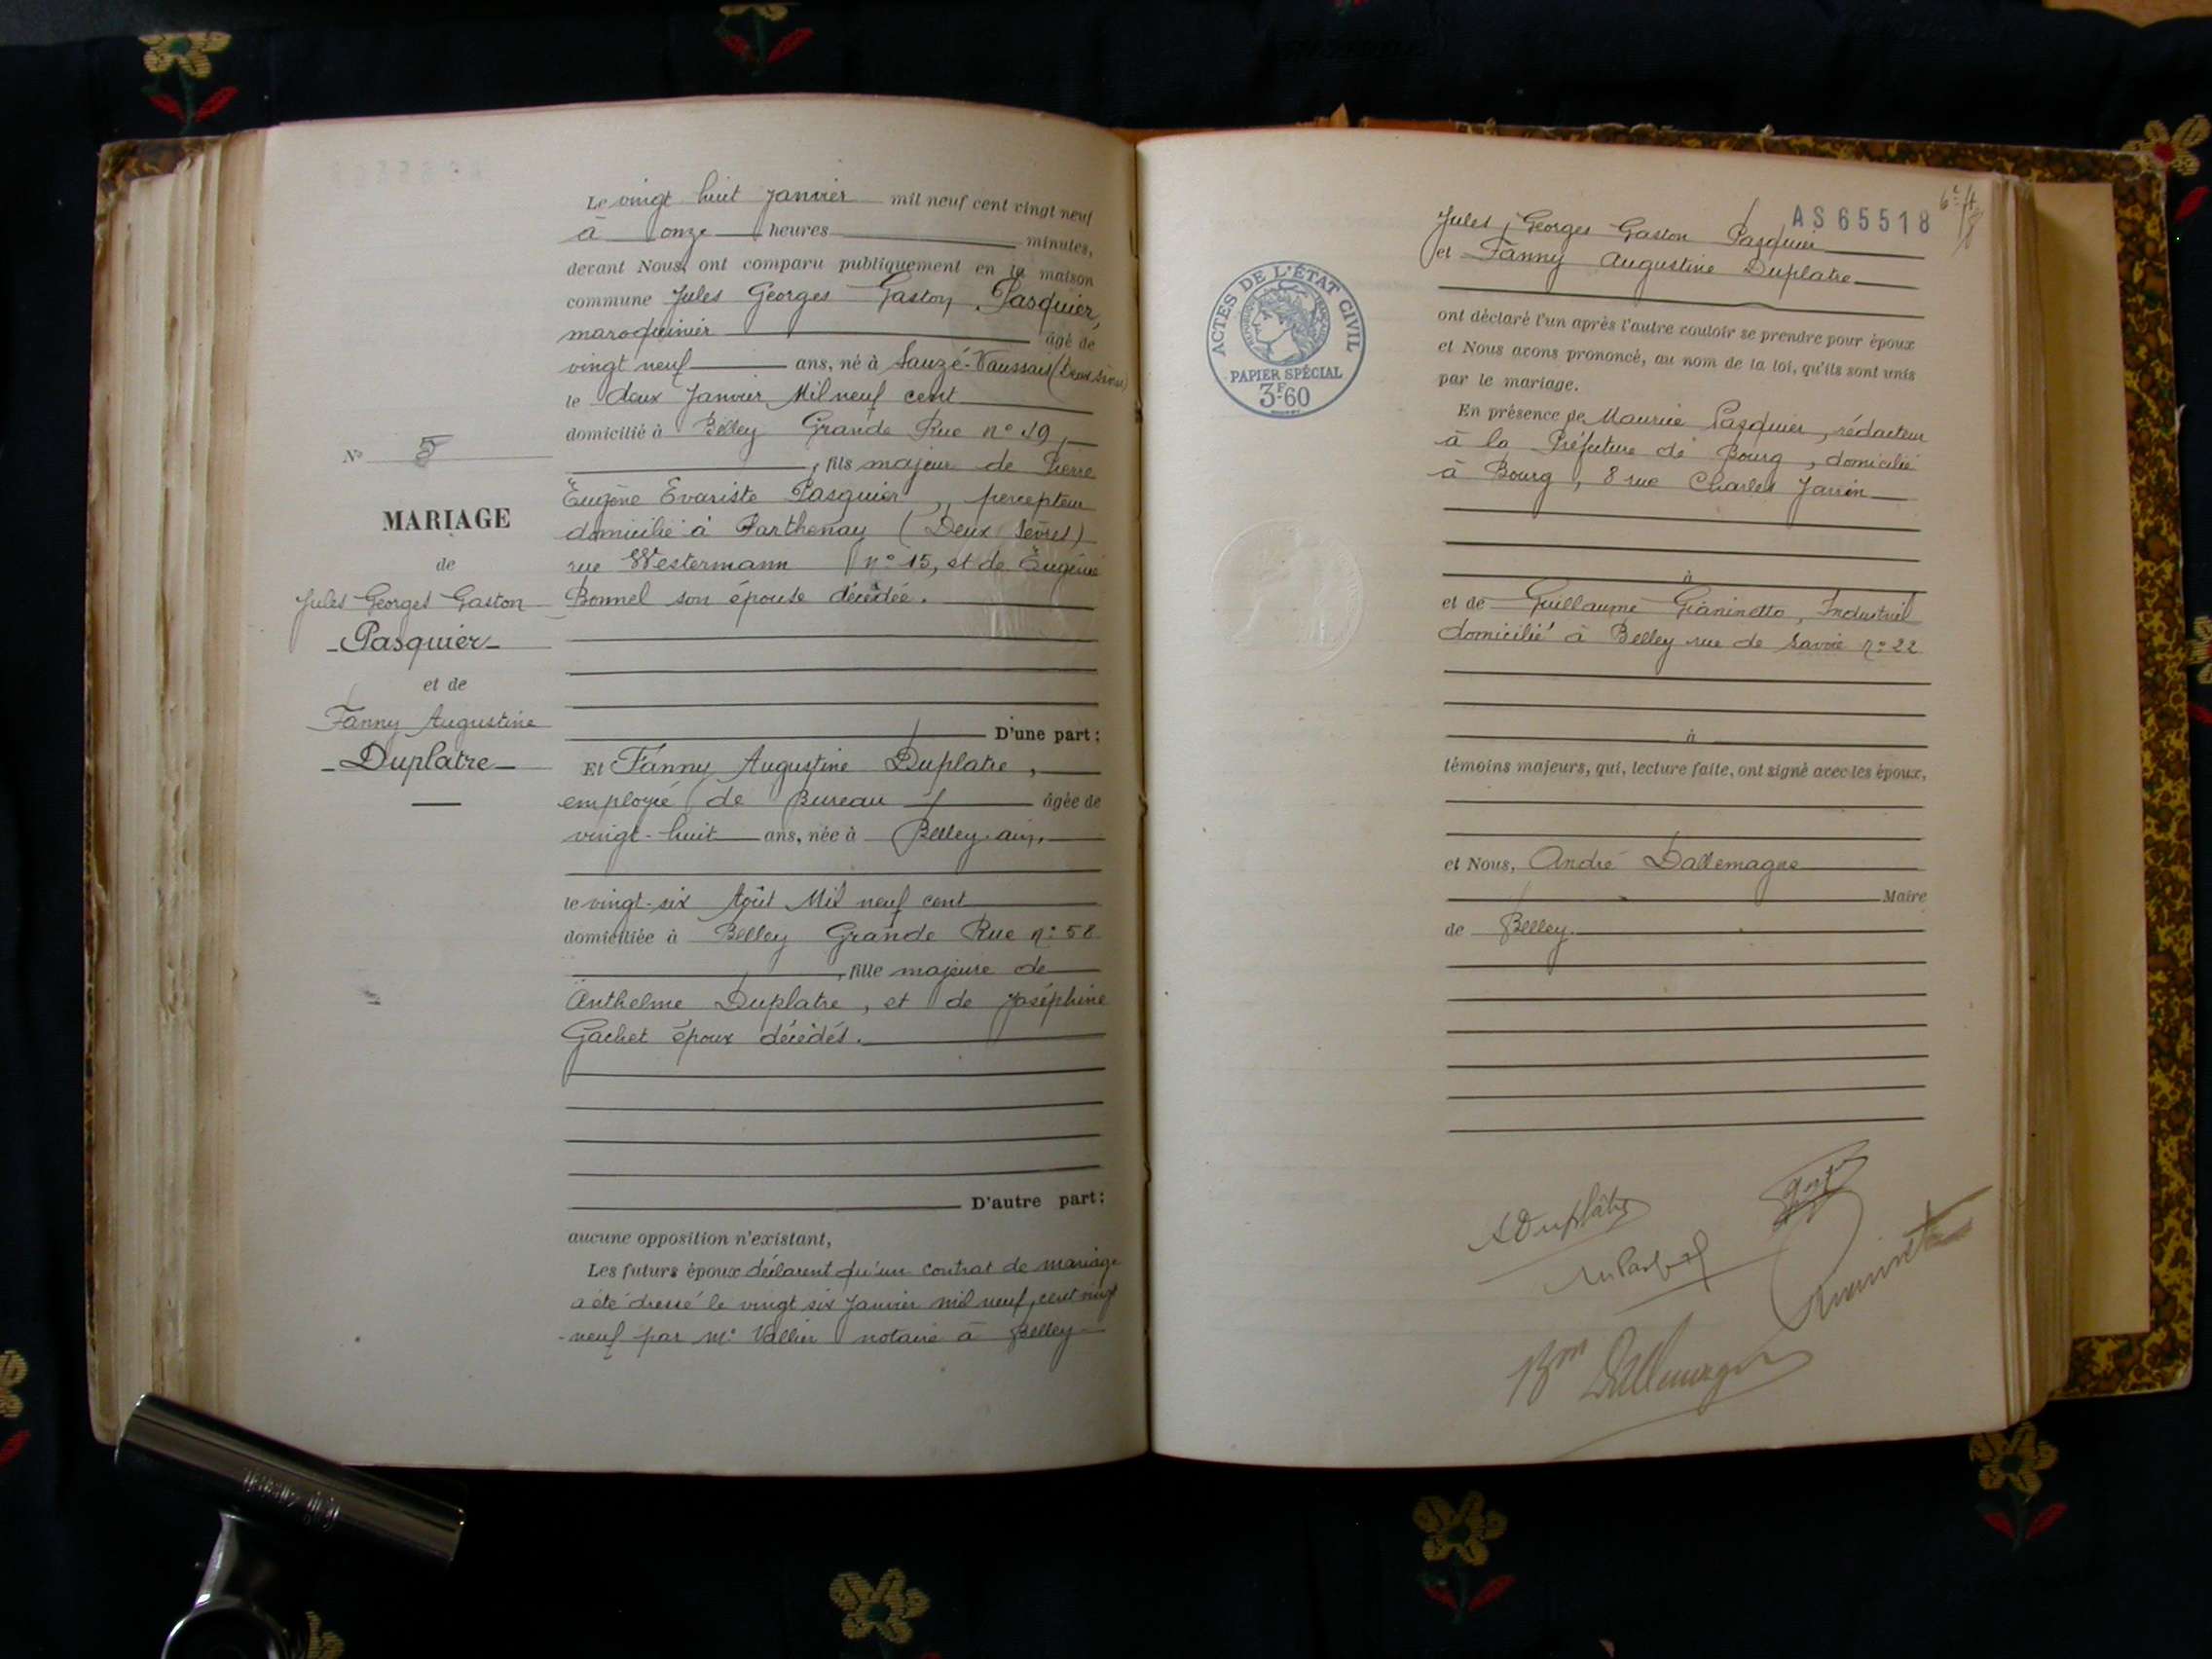 Le vingt huit Janvier mil neuf cent vingt neuf
à onze heures minutes,
devant Nous, ont comparu publiquement en la maison
commune Jules Georges Gaston Pasquier,
maroquinier âgé de
vingt neuf ans, né à Sauzé-Vaussais (Deux Sèvres)
le deux Janvier Mil neuf cent
domicilié à Belley Grande Rue n° 19,
, fils majeur de Pierre
Eugène Evariste Pasquier, percepteur
domicilié à Parthenay (Deux Sèvres)
rue Westermann n° 15, et de Eugénie
Bonnel son épouse décédée.
D'une part;
Et Fanny Augustine Duplatre,
employée de Bureau âgée de
vingt-huit ans, née à Belley-ain,
le vingt-six Août Mil neuf cent
domiciliée à Belley Grande Rue n° 58
, fille majeure de
Anthelme Duplatre, et de Joséphine
Gachet époux décédés.
D'autre part;
aucune opposition n'existant,
Les futurs époux déclarent qu'un contrat de mariage
a été dressé le vingt six Janvier mil neuf cent vingt
-neuf par Me Vallier notaire à Belley
N° 5
MARIAGE
de
Jules Georges Gaston
Pasquier
et de
Fanny Augustine
Duplatre
AS 65518
ACTES DE L'ÉTAT CIVIL
PAPIER SPÉCIAL
3F60
Jules Georges Gaston Pasquier
et Fanny Augustine Duplatre
ont déclaré l'un après l'autre vouloir se prendre pour époux
et Nous avons prononcé, au nom de la loi, qu'ils sont unis
par le mariage.
En présence de Maurice Pasquier, rédacteur
à la Préfecture de Bourg, domicilié
à Bourg, 8 rue Charles Jarrin
à
et de Guillaume Gianinetto, Industriel
domicilié à Belley rue de Savoie n° 22
à
témoins majeurs, qui, lecture faite, ont signé avec les époux,
et Nous, André Dallemagne
Maire
de Belley.
A Duplâtre
Bon Dallemagne